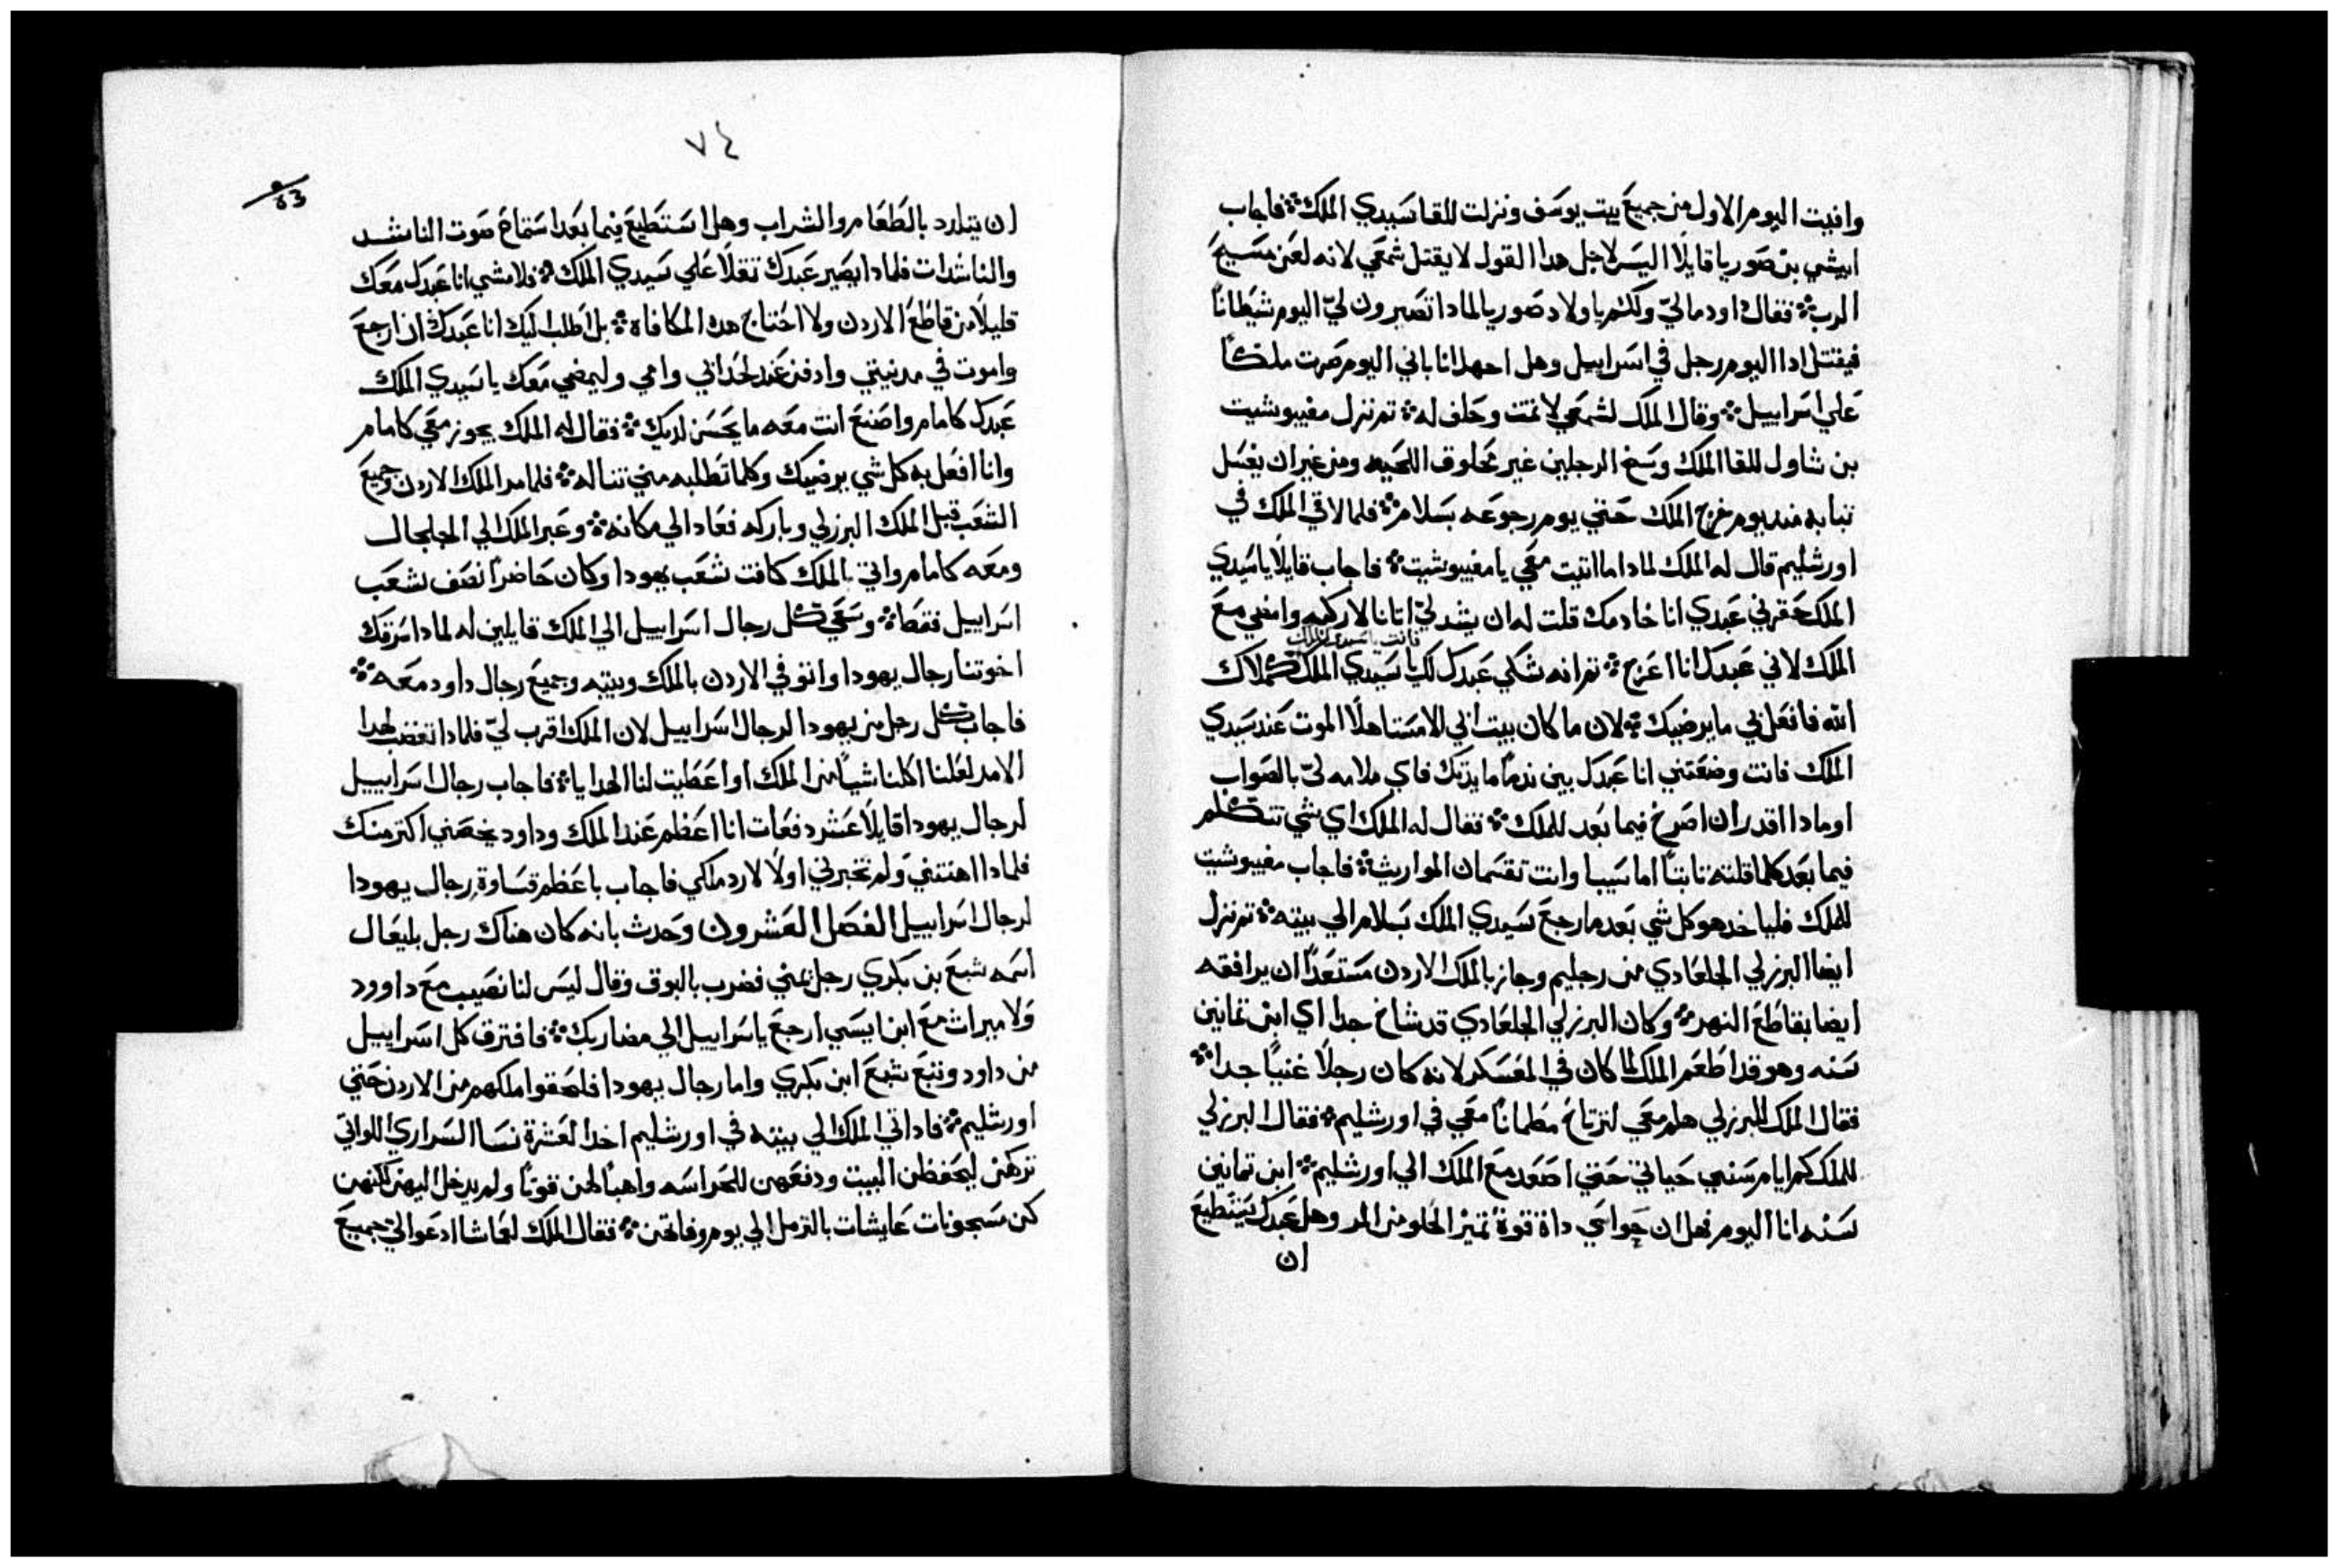 وافيت اليوم الاول من جميع بيت يوسف ونزلت للقا سيدي الملك ፨ فاجاب
ابيشي بن صوريا قايلًا اليس لاجل هدا القول لا يقتل شمعي لانه لعن مسيح
الرب ፨ فقال داود مالي ولكم يا ولاد صوريا لمادا تصيرون لي اليوم شيطانًا
فيقتل ادا اليوم رجل في اسراييل وهل اجهل انا باني اليوم صرت ملكًا
علي اسراييل ፨ وقال الملك لشمعي لا تمت وحلف له ፨ تم نزل مفيبوشيت
بن شاول للقا الملك وسخ الرجلين غير محلوق اللحيه ومن غير ان يغسل
تيابه مند يوم خرج الملك حتي يوم رجوعه بسلام ፨ فلما لاقي الملك في
اورشليم قال له الملك لمادا ما اتيت معي يا مفيبوشيت ፨ فاجاب قايلًا يا سيدي
الملك حقرني عبدي انا خادمك قلت له ان يشد لي اتانا لاركبه وامضي مع
الملك لاني عبدك انا اعرج ፨ تم انه شكي عبدك لك يا سيدي الملك كملاك
فانت يا سيدي الملك
الله فافعل بي ما يرضيك ፨ لان ما كان بيت ابي الا مستاهلًا الموت عند سيدي
الملك فانت وضعتني انا عبدك بين ندما مايدتك فاي ملامه لي بالصواب
اومادا اقدر ان اصرخ فيما بعد للملك ፨ فقال له الملك اي شي تتكلم
فيما بعد كلما قلته تابتًا اما سيبا وانت تقسمان المواريث ፨ فاجاب مفيبوشيت
للملك فلياخد هو كل شي بعد ما رجع سيدي الملك بسلام الي بيته ፨ تم نزل
ايضا البرزلي الجلعادي من رجليم وجاز بالملك الاردن مستعدًا ان يرافقه
ايضا بقاطع النهر ፨ وكان البرزلي الجلعادي قد شاخ جدا اي ابن تمانين
سنه وهو قد اطعم الملك لما كان في المعسكر لانه كان رجلًا غنيًا جدا ፨
فقال الملك للبرزلي هلم معي لترتاح مطمانًا معي في اورشليم ፨ فقال البرزلي
للملك كم ايام سني حياتي حتي اصعد مع الملك الي اورشليم ፨ ابن تمانين
سنه انا اليوم فهل ان حواسي داة قوة تميز الحلو من المر وهل عبدك يستطيع
ان
٧٤
63
ان يتلدد بالطعام والشراب وهل استطيع فيما بعد استماع صوت الناشد
والناشدات فلمادا يصير عبدك تقلًا علي سيدي الملك ፨ فلامشي انا عبدك معك
قليلًا من قاطع الاردن ولا احتاج هده المكافاه ፨ بل اطلب اليك انا عبدك ان ارجع
واموت في مدينتي وادفن عند لحد ابي وامي وليمضي معك يا سيدي الملك
عبدك كامام واصنع انت معه ما يحسن لديك ፨ فقال له الملك يجوز معي كامام
وانا افعل به كل شي يرضيك وكلما تطلبه مني تناله ፨ فلما مر الملك الاردن وجميع
الشعب قبل الملك البرزلي وباركه فعاد الي مكانه ፨ وعبر الملك الي الجلجال
ومعه كامام واتي بالملك كافت شعب يهودا وكان حاضرًا نصف شعب
اسراييل فقط ፨ وسعي كل رجال اسراييل الي الملك قايلين له لمادا سرقك
اخوتنا رجال يهودا واتو في الاردن بالملك وبيته وجميع رجال داود معه ፨
فاجاب كل رجل من يهودا لرجال اسراييل لان الملك اقرب لي فلمادا تغضب لهدا
الامر لعلنا اكلنا شيًا من الملك او اعطيت لنا الهدايا ፨ فاجاب رجال اسراييل
لرجال يهودا قايلًا عشر دفعات انا اعظم عند الملك وداود يخصني اكتر منك
فلمادا اهنتني ولم تخبرني اولًا لارد ملكي فاجاب باعظم قساوة رجال يهودا
لرجال اسراييل الفصل العشرون وحدث بانه كان هناك رجل بليعال
اسمه شبع بن بكري رجل يمني فضرب بالبوق وقال ليس لنا نصيب مع داوود
ولا ميراث مع ابن ايسي ارجع يا سراييل الي مضاربك ፨ فافترق كل اسراييل
من داود وتبع شبع ابن بكري واما رجال يهودا فلحقوا ملكهم من الاردن حتي
اورشليم ፨ فاد اتي الملك الي بيته في اورشليم اخد العشرة نسا السراري اللواتي
تركهن ليحفظن البيت ودفعهن للحراسه واهبًا لهن قوتًا ولم يدخل اليهن لكنهن
كن مسجونات عايشات بالترمل الي يوم وفاتهن ፨ فقال الملك لعاشا ادعوا لي جميع